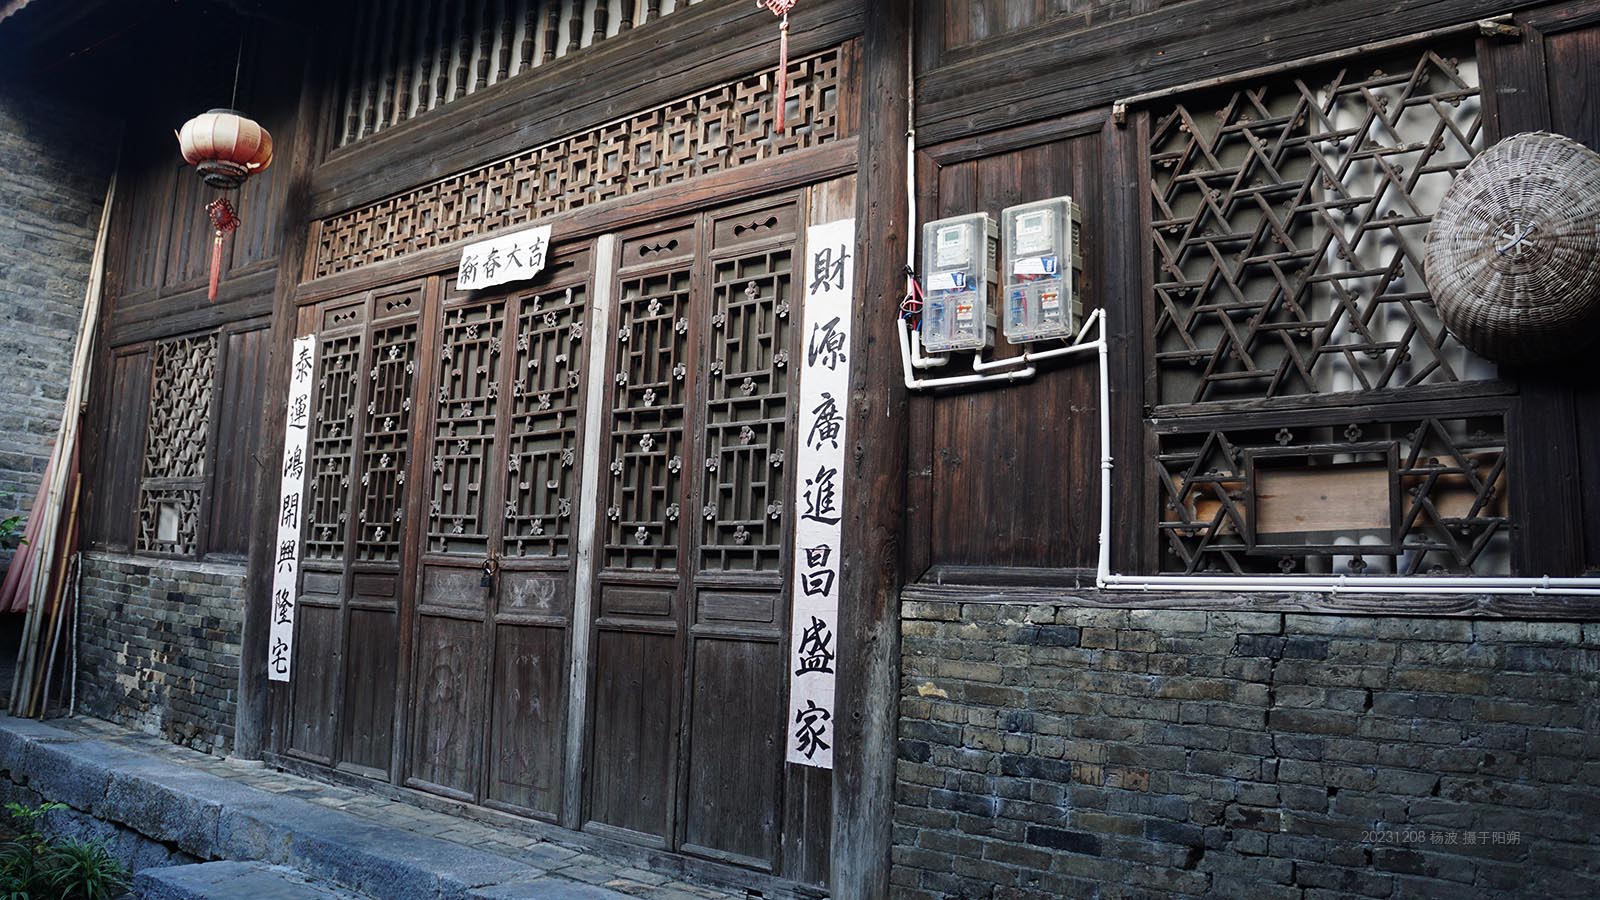 新春大吉
財源廣進昌盛家
泰運鴻開興隆宅
20231208 杨波 摄于阳朔